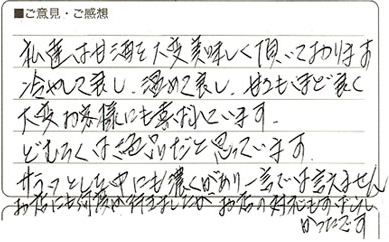 ■ご意見・ご感想
私達は甘酒を大変美味しく頂いております
冷やして良し、温めて良し、甘さもほど良く
大変お客様にも喜ばれています。
どむろくは絶品だと思っています。
サラッとした中にも濃くがあり一言では言えません
お店にも何度か行きましたが お店の対応もすばらし
かったです